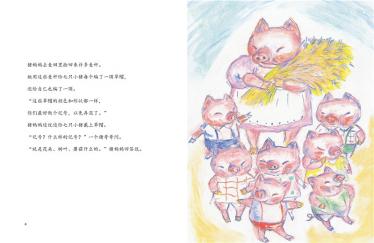 猪妈妈去麦田里捡回来许多麦秆。
她用这些麦秆给七只小猪每个编了一顶草帽，
也给自己也编了一顶。
“这些草帽的颜色和形状都一样，
你们最好做个记号，以免弄混了。”
猪妈妈边说边给七只小猪戴上草帽。
“记号？什么样的记号？”一个猪哥哥问。
“就是花朵、树叶、蘑菇什么的。”猪妈妈回答说。